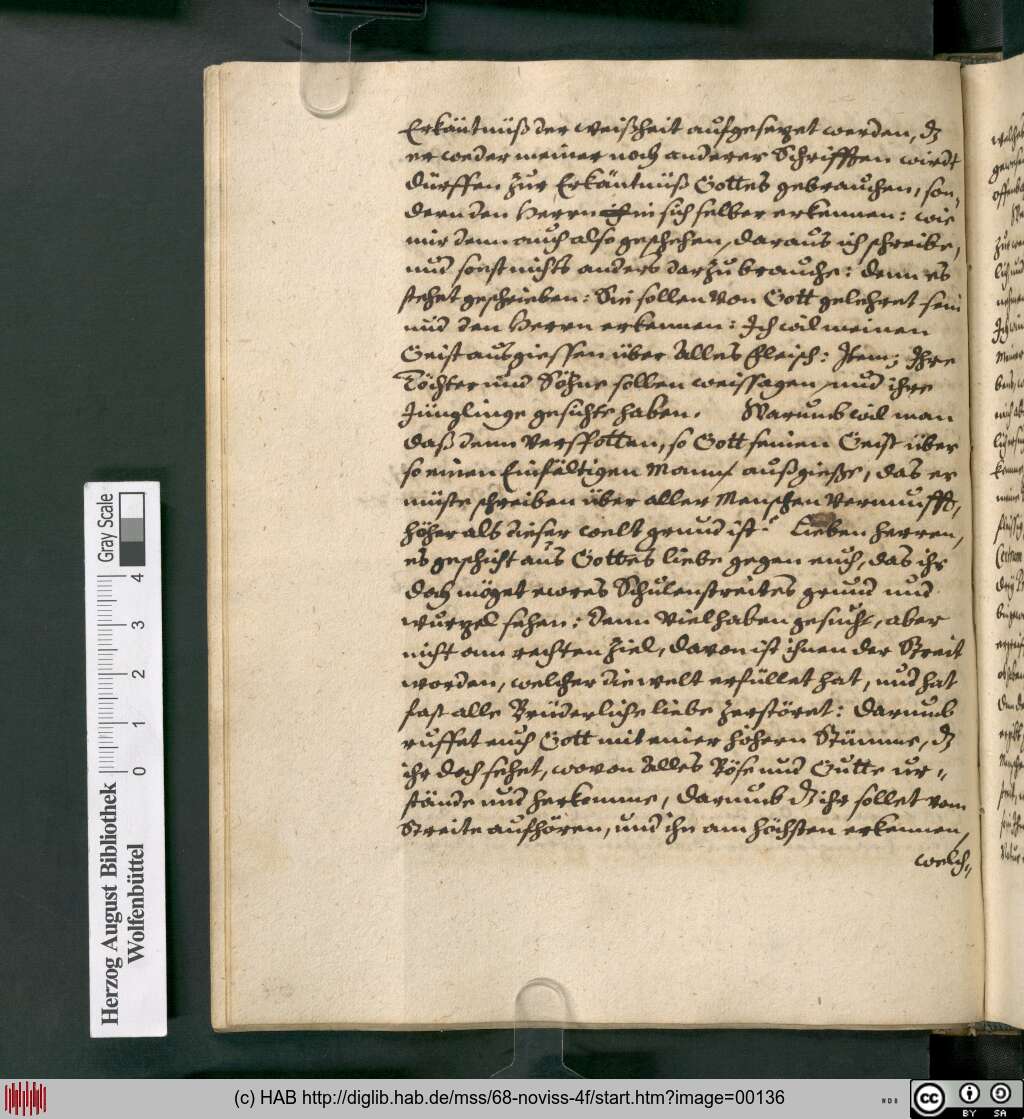 Erkäntnüß der weißheit aufgesezet werden, dz
er weder meiner noch anderer Schrifften wirdt
dürffen zur Erkäntnüß Gottes gebrauchen, son,
dern den Herrn in sich selber erkennen: wie
mir denn auch also geschehen, daraus ich schreibe,
und sonst nichts anders darzu brauche: denn es
stehet geschrieben: Sie sollen von Gott gelehret sein
und den Herrn erkennen: Ich wil meinen
Geist ausgiessen über Alles fleisch: Item; Ihre
Töchter und Söhne sollen weissagen, und ihre
Jünglinge gesichte haben. Warumb wil man
daß denn verspotten, so Gott seinen Geist über
so einen Einfältigen Mann außgiesse, das er
müste schreiben über aller Menschen vernunfft,
höher als dieser welt grund ist? Lieben herren,
es geschicht aus Gottes liebe gegen euch, das ihr
doch möget ewres Schulenstreites grund und
wurzel sehen: denn viel haben gesucht, aber
nicht am rechten Ziel, davon ist ihnen der Streit
worden, welcher die welt erfüllet hat, und hat
fast alle Brüderliche liebe zerstöret: Darumb
ruffet euch Gott mit einer höhern Stimme, dz
ihr doch sehet, wovon Alles Böse und Gutte ur„
stände und herkomme, darumb dz ihr sollet vom
Streite aufhören, und ihn am höchsten erkennen,
welch„
Gray Scale
4
3
2
1
0
Herzog August Bibliothek
Wolfenbüttel
(c) HAB http://diglib.hab.de/mss/68-noviss-4f/start.htm?image=00136
WDB
cc
BY SA